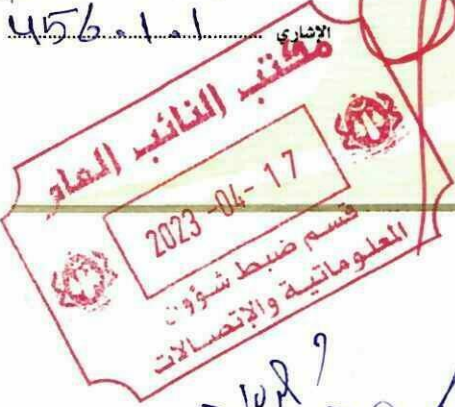 الإشاري 456.1.1
مكتب النائب العام
2023 -04- 17
قسم ضبط شؤون
المعلوماتية والإتصالات